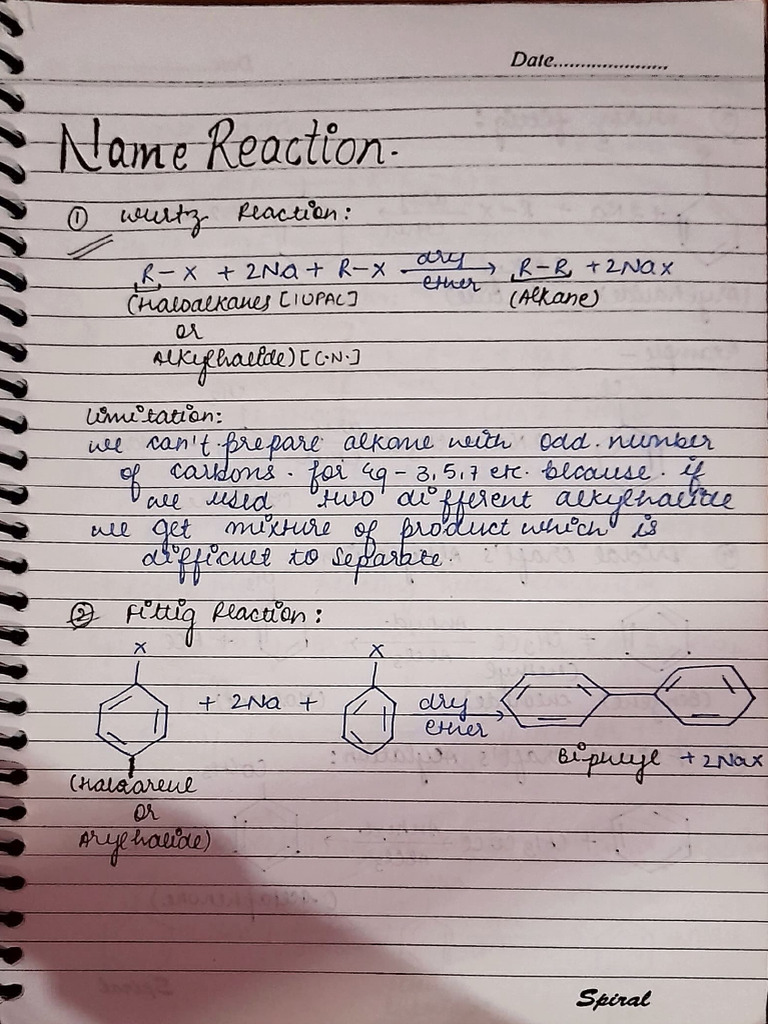 Date.....................
Name Reaction.
① Wurtz Reaction:
R-X + 2Na + R-X dry ether → R-R + 2NaX
(Haloalkanes [IUPAC] (Alkane)
or
Alkylhalide) [C.N.]
Limitation:
we can't prepare alkane with odd number
of carbons. for eg - 3, 5, 7 etc. because if
we used two different alkylhalide
we get mixture of product which is
difficult to separate.
② Fittig Reaction:
X X
+ 2Na + dry ether →
Biphenyl + 2NaX
(Haloarene
or
Arylhalide)
Spiral